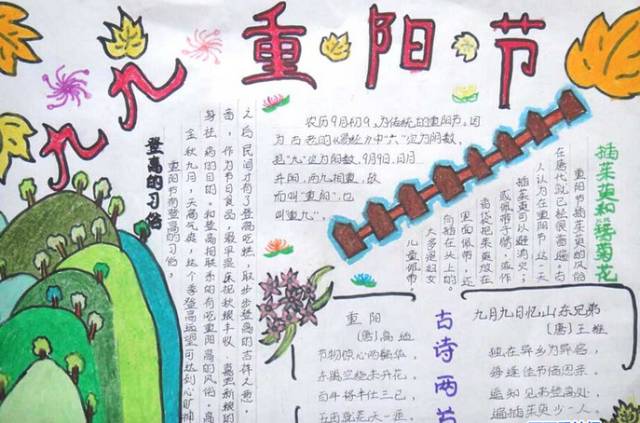 九九重阳节
农历9月初9,为传统的重阳节。因
为古老的《易经》中“六”定为阴数,
把“九”定为阳数,9月9日,日月
并阳,两九相重,故
而叫“重阳”,也
叫“重九”。
插茱萸和簪菊花
重阳节插茱萸的风俗
在唐代就已经很普遍。古
人认为在重阳节这一天
插茱萸可以避难消灾;
或佩带于臂,或作
香袋把茱萸放在
里面佩带,还
有插在头上的。
大多是妇女
儿童佩带,
登高的习俗
重阳节有登高的习俗,
金秋九月,天高气爽,这个季登高远望可达到心旷神
身祛病的目的。和登高相联系的有吃重阳高的风俗。高
面,作为节日食品,最早是庆祝秋粮丰收、喜尝新粮的
之后民间才有了登高吃糕,取步步登高的吉祥之意。
古诗两
重阳
(唐)高适
节物惊心两鬓华,
东篱空绕未开花。
百年将半仕三已,
五亩就荒天一涯
九月九日忆山东兄弟
(唐)王维
独在异乡为异客,
每逢佳节倍思亲。
遥知兄弟登高处,
遍插茱萸少一人。